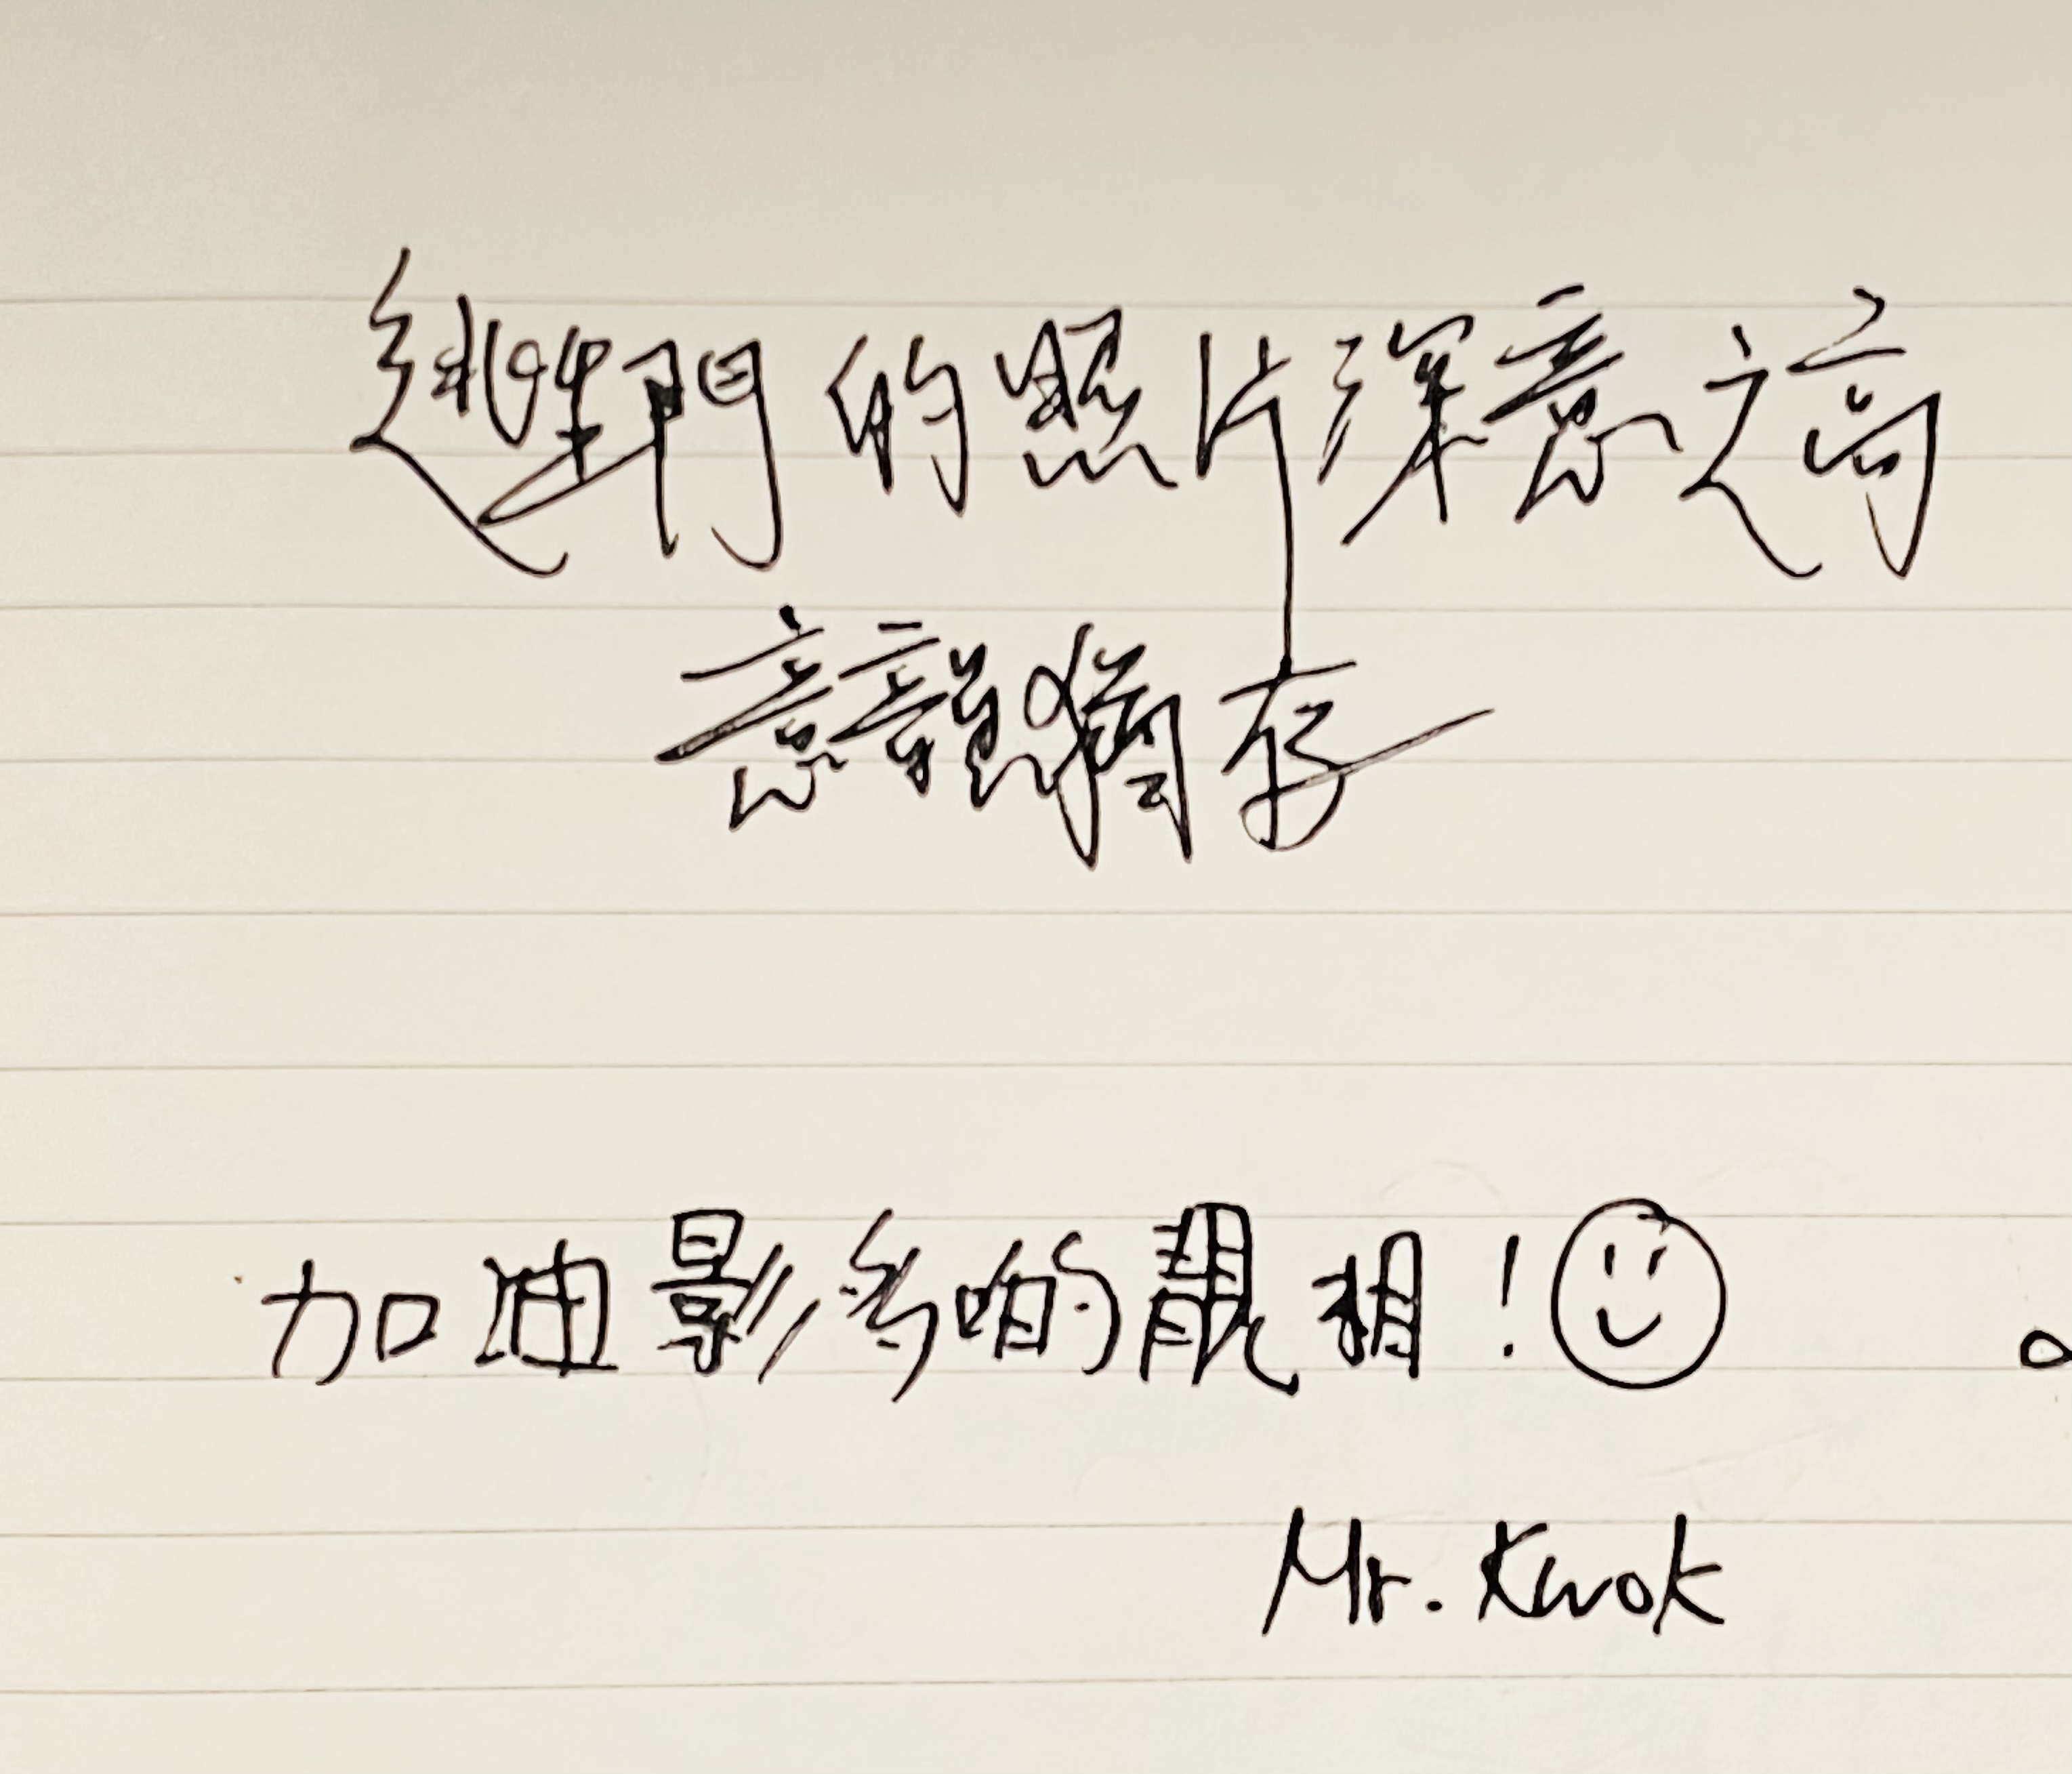 的照片深意之高
意韻猶存
加油影多啲靚相!
Mr. Kwok